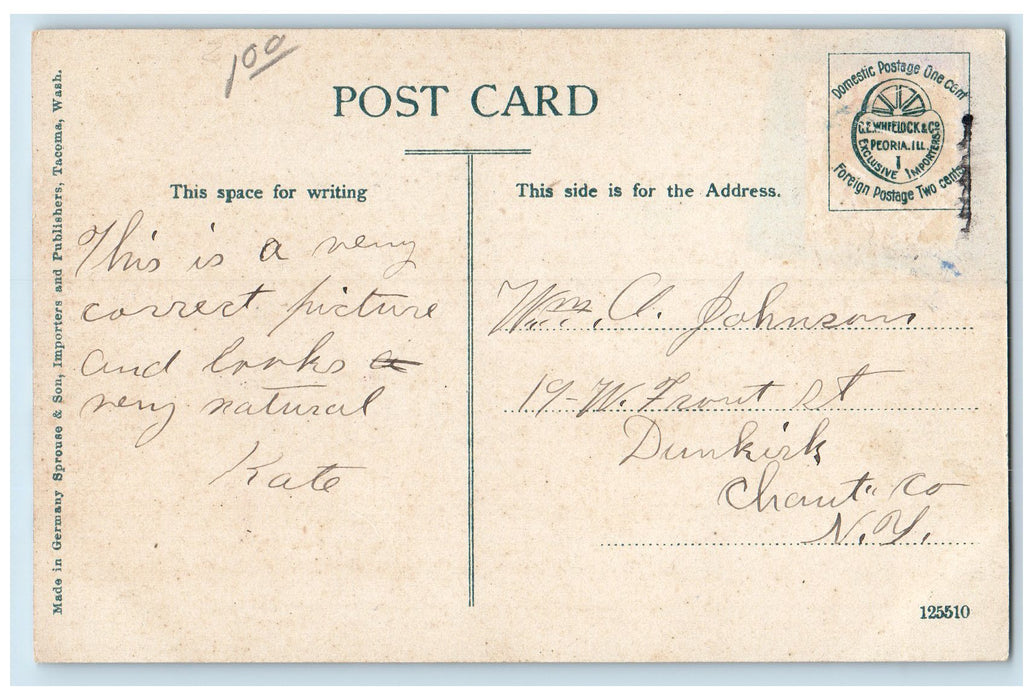 1.00
POST CARD
Domestic Postage One cent
C.E. WHEELOCK & Co
PEORIA. ILL.
EXCLUSIVE IMPORTERS
Foreign Postage Two cents
This space for writing
This is a very
correct picture
and looks a
very natural
Kate
This side is for the Address.
Wm. A. Johnson
19-W. Front St
Dunkirk
Chaut. Co
N.Y.
125510
Made in Germany Sprouse & Son, Importers and Publishers, Tacoma, Wash.